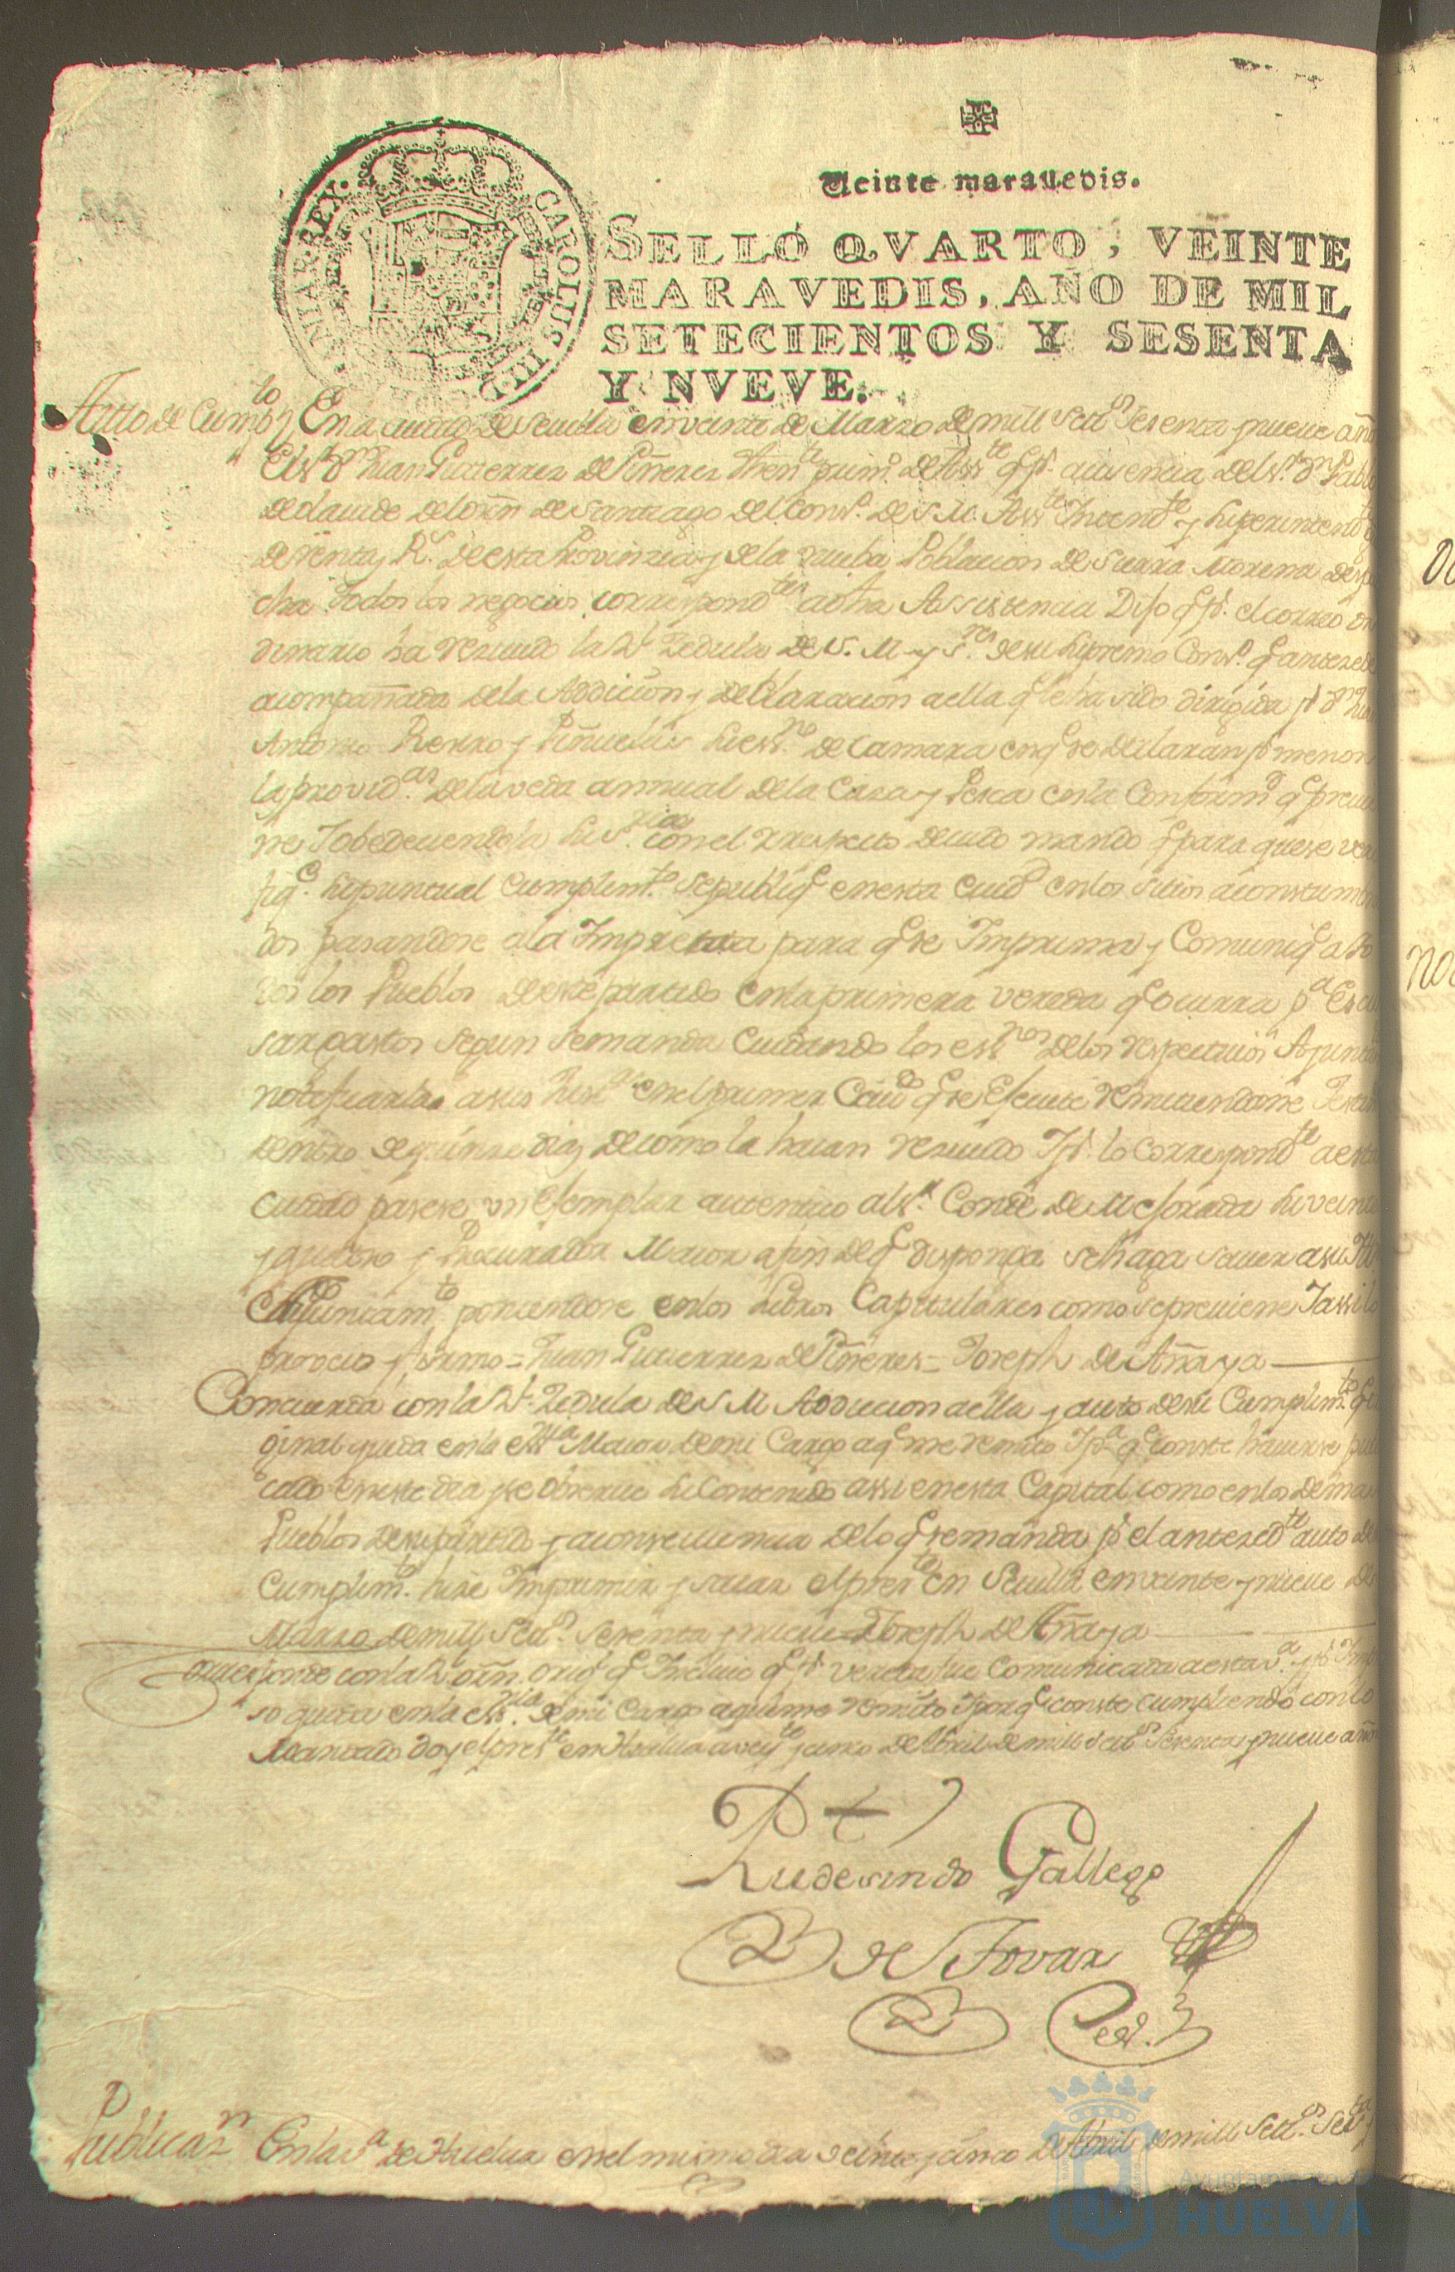 Veinte maravedis.
SELLO QVARTO, VEINTE
MARAVEDIS, AÑO DE MIL
SETECIENTOS Y SESENTA
Y NVEVE.
CAROLUS III D
NIAR REX.
Auto de Cump.to En la ciudad de Sevilla en veinte de Marzo de mill Set.s Sesenta y nueve años
El s.r D.n Juan Gutierrez de Piñeres then.te prim.o de Ass.te q.e p.r ausencia del s.r D.n Pablo
de Olavide del orn de Santiago del Cons.o de S. M. Ass.te Intend.te y Superintend.te
de rentas R.s de esta Provinzia y de la nueba Poblacion de Sierra Morena despa
cha todos los negocios correspond.tes a dha Assistencia Dijo q.e p.r el correo or
dinario ha reciuido la R.l Zedula de S. M. y s.res de su Supremo Cons.o q.e antezede
acompañada de la Addicion y declaracion a ella q.e le ha sido dirigida p.r D.n Juan
Antonio Rero y Peñuelas Su ess.no de Camara en q.e se declaran p.r menor
las provid.as de la veda annual de la Caza y Pesca en la Conform.d q.e previe
ne Y obedeciendola Su S.ria con el respecto devido mando q.e para que se veri
fiq.e su puntual Cumplim.to se publiq.e en esta Ciud.d en los sitios acostumbra
dos pasandose a la Imprenta para q.e se Imprima y Comuniq.e a to
dos los Pueblos de este partido en la primera vereda q.e ocurra p.a Escu
sar gastos segun se manda Cuidando los ess.nos de los respectivos Ayuntam
notificarla a sus Just.as en el primer Cavd.o q.e se Efectue remitiendome Testim
dentro de quinze dias de como la haian reciuido Y p.r lo Correspond.te a esta
Ciudad pasese un Exemplar autentico al s.r Conde de Mejorada Su veinte
y quatro y Procurador Maior a fin de q.e disponga se haga saver a su Ill.e
Ayuntam.to poniendose en los Libros Capitulares como se previene Y assi lo
proveio y firmo = Juan Gutierrez de Piñeres = Joseph de Añaya
Concuerda con la R.l Zedula de S M Addicion a ella y auto de su Cumplim.to q.e ori
ginal queda en la ess.a Maior de mi Cargo a q.e me remito Y p.a q.e conste haverse publi
cado en este dia y se observe su Contenido assi en esta Capital como en los demas
Pueblos de su partido y a consequencia de lo q.e se manda p.r el antezed.te auto de
Cumplim.to hize Imprimir y sacar el pres.te en Sevilla en veinte y nueve de
Marzo de mill Set.s Sesenta y nueve = Joseph de Añaya
Corresponde con la R.l orn. orig.l q.e p.r vereda fue Comunicada a esta V.a y p.r Impre
so queda en la ess.ria de mi Cargo a que me remito Y por q.e conste cumpliendo con lo
Mandado doy el pres.te en Huelva a veinte y cinco de Abril de mill set.s Sesenta y nueve años
Rudesindo Gallego
de Tovar
Publicaz.n En la v.a de Huelva en el mismo dia veinte y cinco de Abril de mill Set.s Ses.ta y
Ayuntamiento de
HUELVA